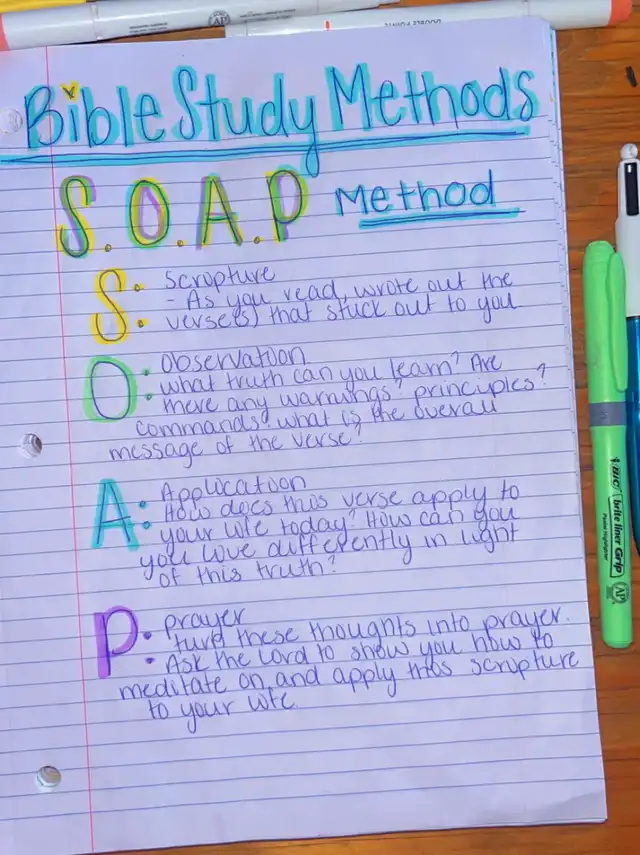 Bible Study Methods
S.O.A.P Method
S: Scripture
- As you read, wrote out the
verse(s) that stuck out to you
O: Observation
what truth can you learn? Are
there any warnings? principles?
commands? what is the overall
message of the verse?
A: Application
How does this verse apply to
your life today? How can you
you live differently in light
of this truth?
P: prayer
turn these thoughts into prayer.
Ask the Lord to show you how to
meditate on and apply this scripture
to your life.
BIC brite liner Grip
AP
AP
DOUBLE POINTE